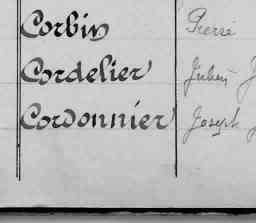 Corbin Pierre
Cordelier Julien J
Cordonnier Joseph J